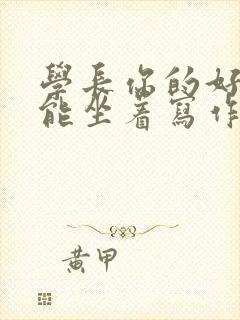 學長你的好
能坐着寫作
黃甲